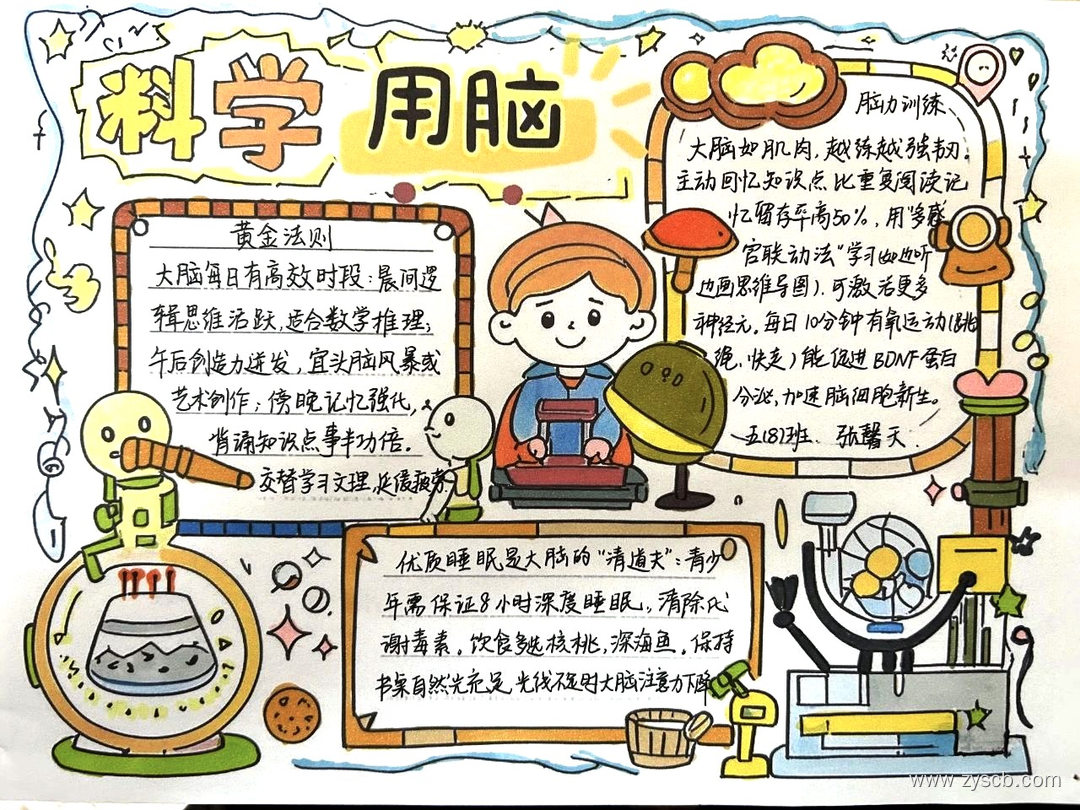 科学用脑
黄金法则
大脑每日有高效时段：晨间逻
辑思维活跃，适合数学推理；
午后创造力迸发，宜头脑风暴或
艺术创作；傍晚记忆强化，
背诵知识点事半功倍。
交替学习文理，延缓疲劳
脑力训练、
大脑如肌肉，越练越强韧。
主动回忆知识点比重复阅读记
忆留存率高50%，用“多感
官联动法”学习（如边听
边画思维导图），可激活更多
神经元，每日10分钟有氧运动（跳
绳、快走）能促进BDNF蛋白
分泌，加速脑细胞新生。
五(8)班、张馨天、
优质睡眠是大脑的“清道夫”：青少
年需保证8小时深度睡眠，清除代
谢毒素。饮食多选核桃，深海鱼。保持
书桌自然光充足，光线不足时大脑注意力下降
www.zyscb.com